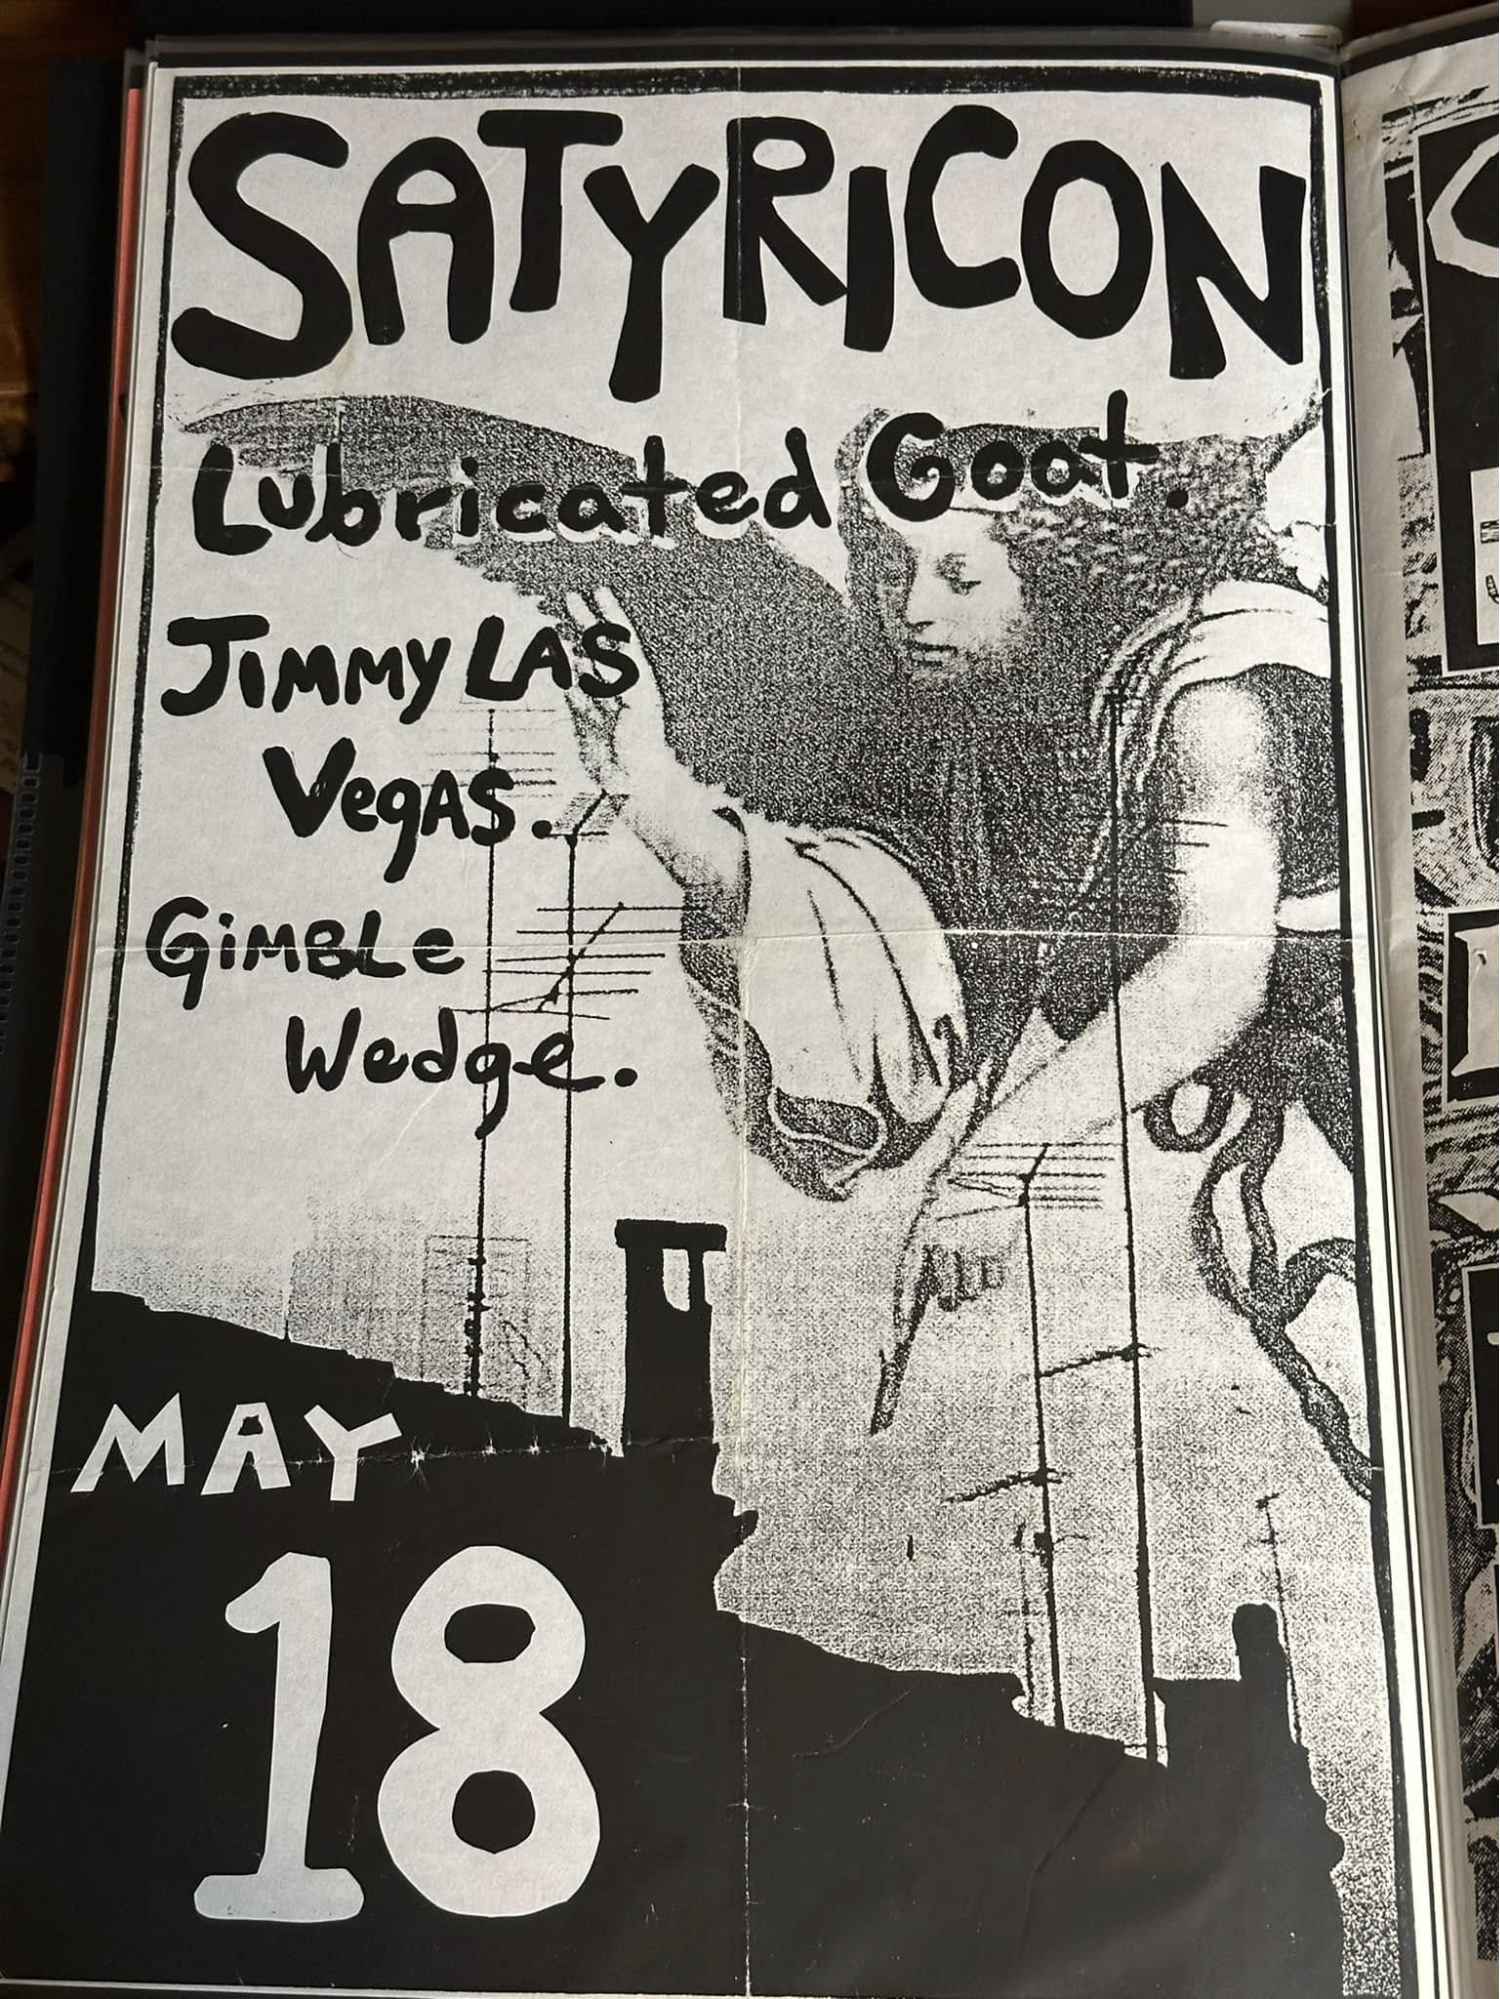 SATYRICON
Lubricated Goat.
JIMMY LAS
VegAS.
GiMBLe
Wedge.
MAY
18